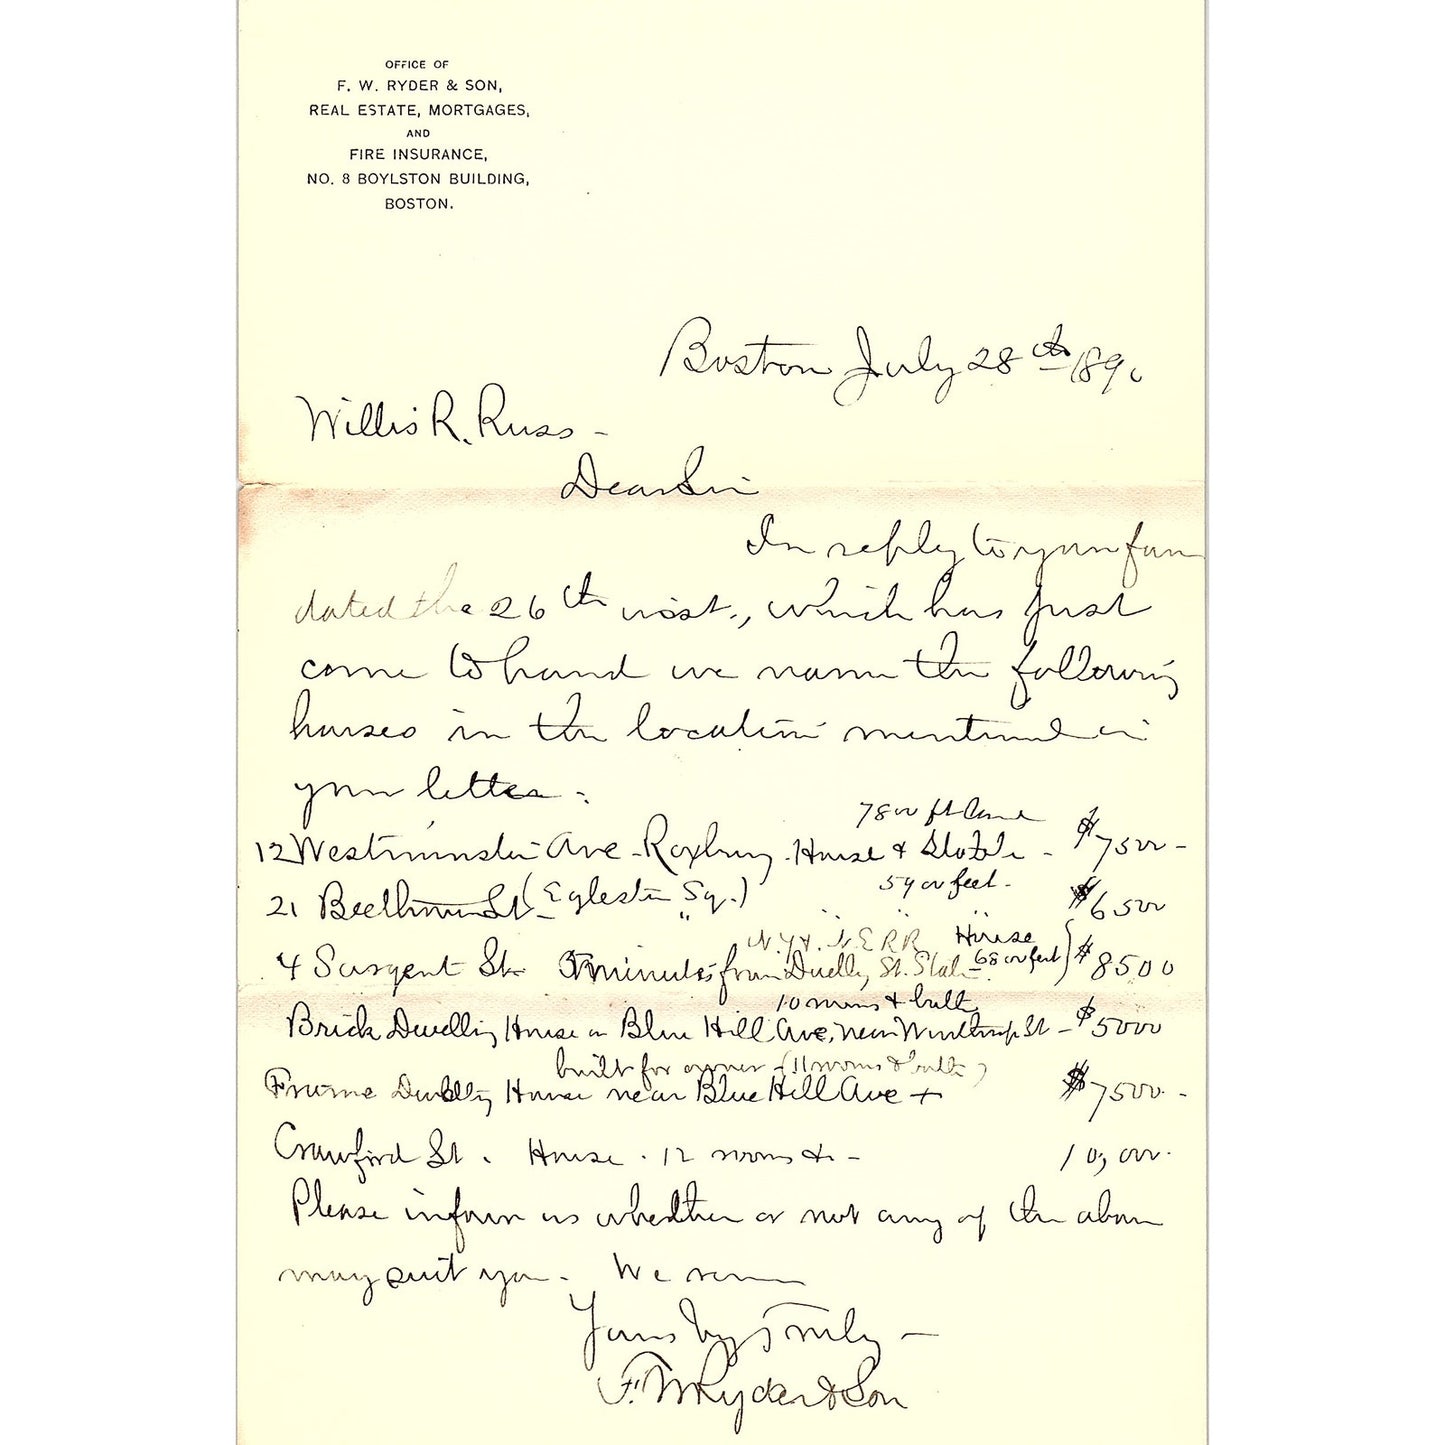 OFFICE OF
F. W. RYDER & SON,
REAL ESTATE, MORTGAGES,
AND
FIRE INSURANCE,
NO. 8 BOYLSTON BUILDING,
BOSTON.
Boston July 28th 1890
Willis R. Russ -
Dear Sir
In reply to your favor
dated the 26th inst., which has just
come to hand we name the following
houses in the location mentioned in
your letter :
7800 ft land
12 Westminster Ave - Roxbury - House & Stable - $7500 -
5900 feet -
21 Beethoven St - (Egleston Sq.) " " " " $6500
N.Y. & N.E RR House
4 Sargent St. 5 minutes from Dudley St. Statn - 6800 feet } $8500
10 rooms & bath
Brick Dwelling House on Blue Hill Ave, near Winthrop St - $5000
built for owner - (11 rooms & bath)
Frame Dwelling House near Blue Hill Ave + $7500 -
Crawford St. House - 12 rooms &c - 10,000 -
Please inform us whether or not any of the above
may suit you - We remain
Yours Very Truly -
F. W. Ryder & Son